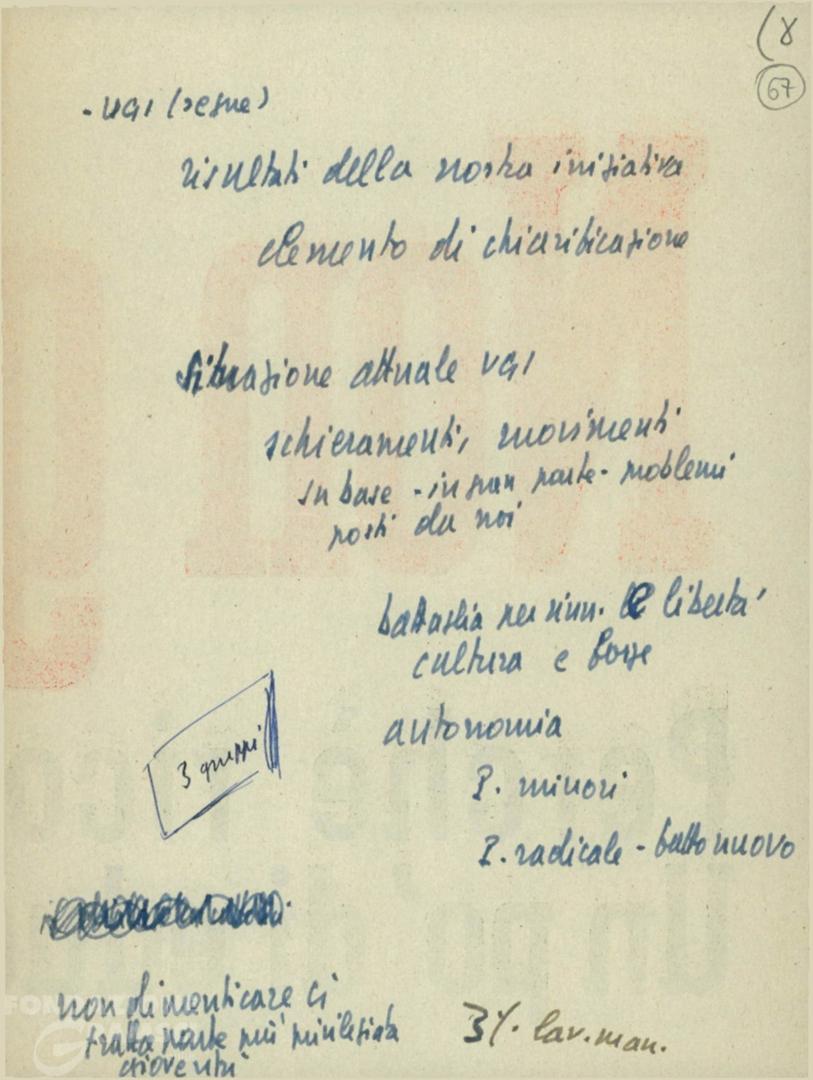 (8
67
- UGI (segue)
risultati della nostra iniziativa
elemento di chiarificazione
situazione attuale UGI
schieramenti, movimenti
su base - in gran parte - problemi
posti da noi
battaglia per rinn. e libertà
cultura e forze
autonomia
P. minori
P. radicale - fatto nuovo
3 gruppi
non dimenticare ci
tratta parte più privilegiata
gioventù
3%. lav. man.